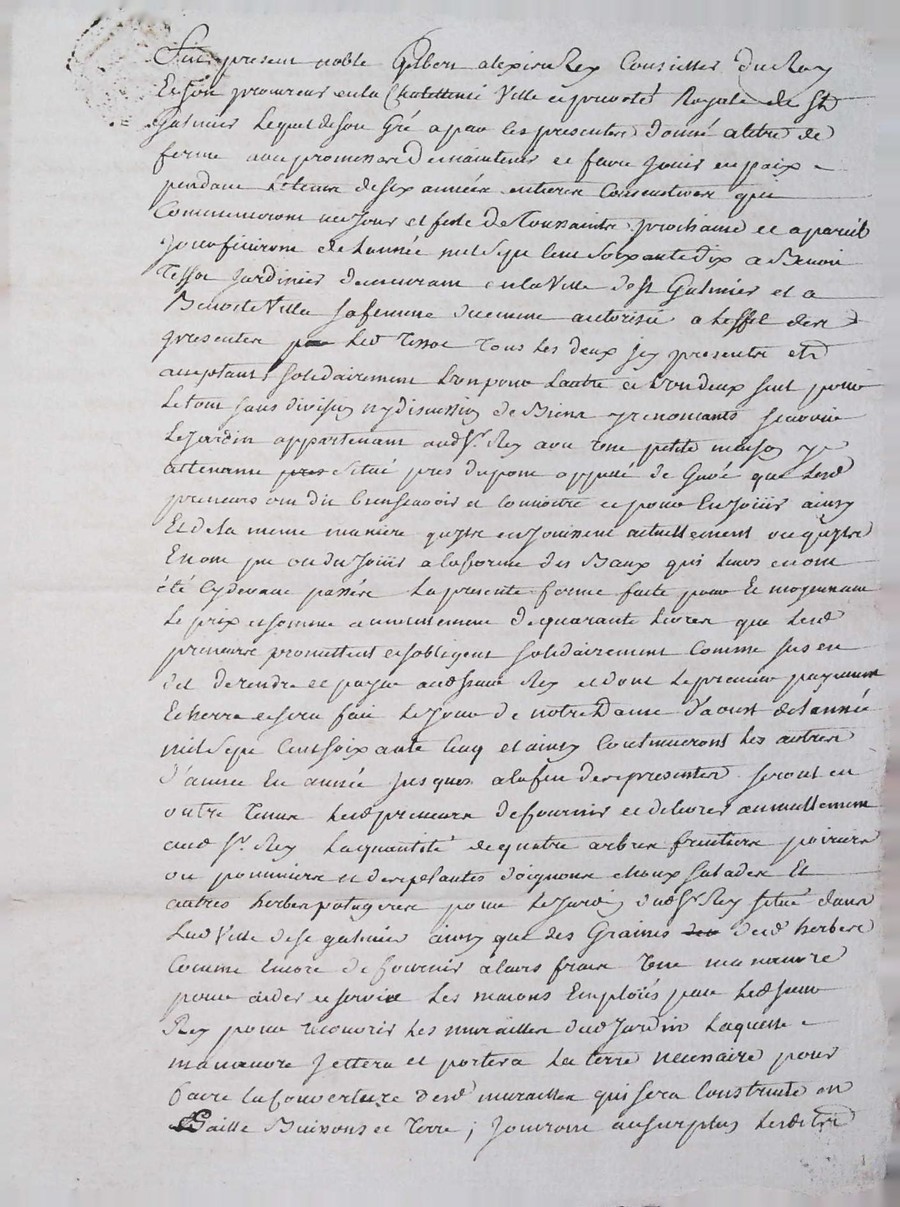 Fut present noble Gilbert alexis Rey Conseiller Du Roy
Et son procureur en la Chatellenie Ville et prevoté Royale de St
Galmier Lequel de son Gré a par les presentes donné a titre de
ferme avec promesse De maintenir et faire Jouir en paix
pendant Le tems de six années entieres Consecutives qui
Commenceront au Jour et feste De Toussaints prochaine et a pareil
Jour finiront de Lannée mil sept cent soixante dix a Benoit
Tessot Jardinier demeurant en la Ville de St Galmier et a
Benoite Villa sa femme de numero autorisée a Leffet des
presentes par led Tessot Tous Les deux Icy presents et
acceptants solidairement L'un pour Lautre et L'un deux seul pour
Le tout sans division ny discussion de Biens y renoncants scavoir
Le Jardin appartenant aud Sr. Rey avec Une petite maison y
attenante situé pres du pont appellé de Gavé que lesd
preneurs ont dit bien scavoir et connoitre et pour En Jouir ainsy
Et de la meme maniere qu'ils en Jouissent actuellement ou qu'ils
En ont pu ou du Jouir a la forme des Baux qui leurs en ont
été Cydevant passés La presente ferme faite pour Et moyennant
Le prix et somme annuellement de quarante Livres que lesd
preneurs promettent et sobligent solidairement Comme sus en
dit de rendre et payer aud sieur Rey et dont Le premier payement
Echerra et sera fait Le Jour de notre Dame D'aoust de Lannée
mil sept Cent soixante Cinq et ainsy Continueront Les autres
d'année En année Jusques a la fin des presentes seront en
outre Tenus Lesd preneurs de fournir et delivrer annuellement
aud Sr. Rey La quantité de quatre arbres fruitiers poiriers
ou pommiers et des plantes doignons choux salades Et
autres herbes potageres pour Le Jardin dud Sr Rey situé dans
Lad Ville de St galmier ainsy que des Graines desd herbes
Comme Encore de fournir a leurs frais Une manœuvre
pour aider et servir Les macons Emploiés par led sieur
Rey pour recouvrir Les murailles dud Jardin Laquelle
manœuvre Jettera et portera La terre necessaire pour
faire La Couverture desd murailles qui sera Construite en
Paille Buissons et Terre ; Jouiront au surplus Lesd